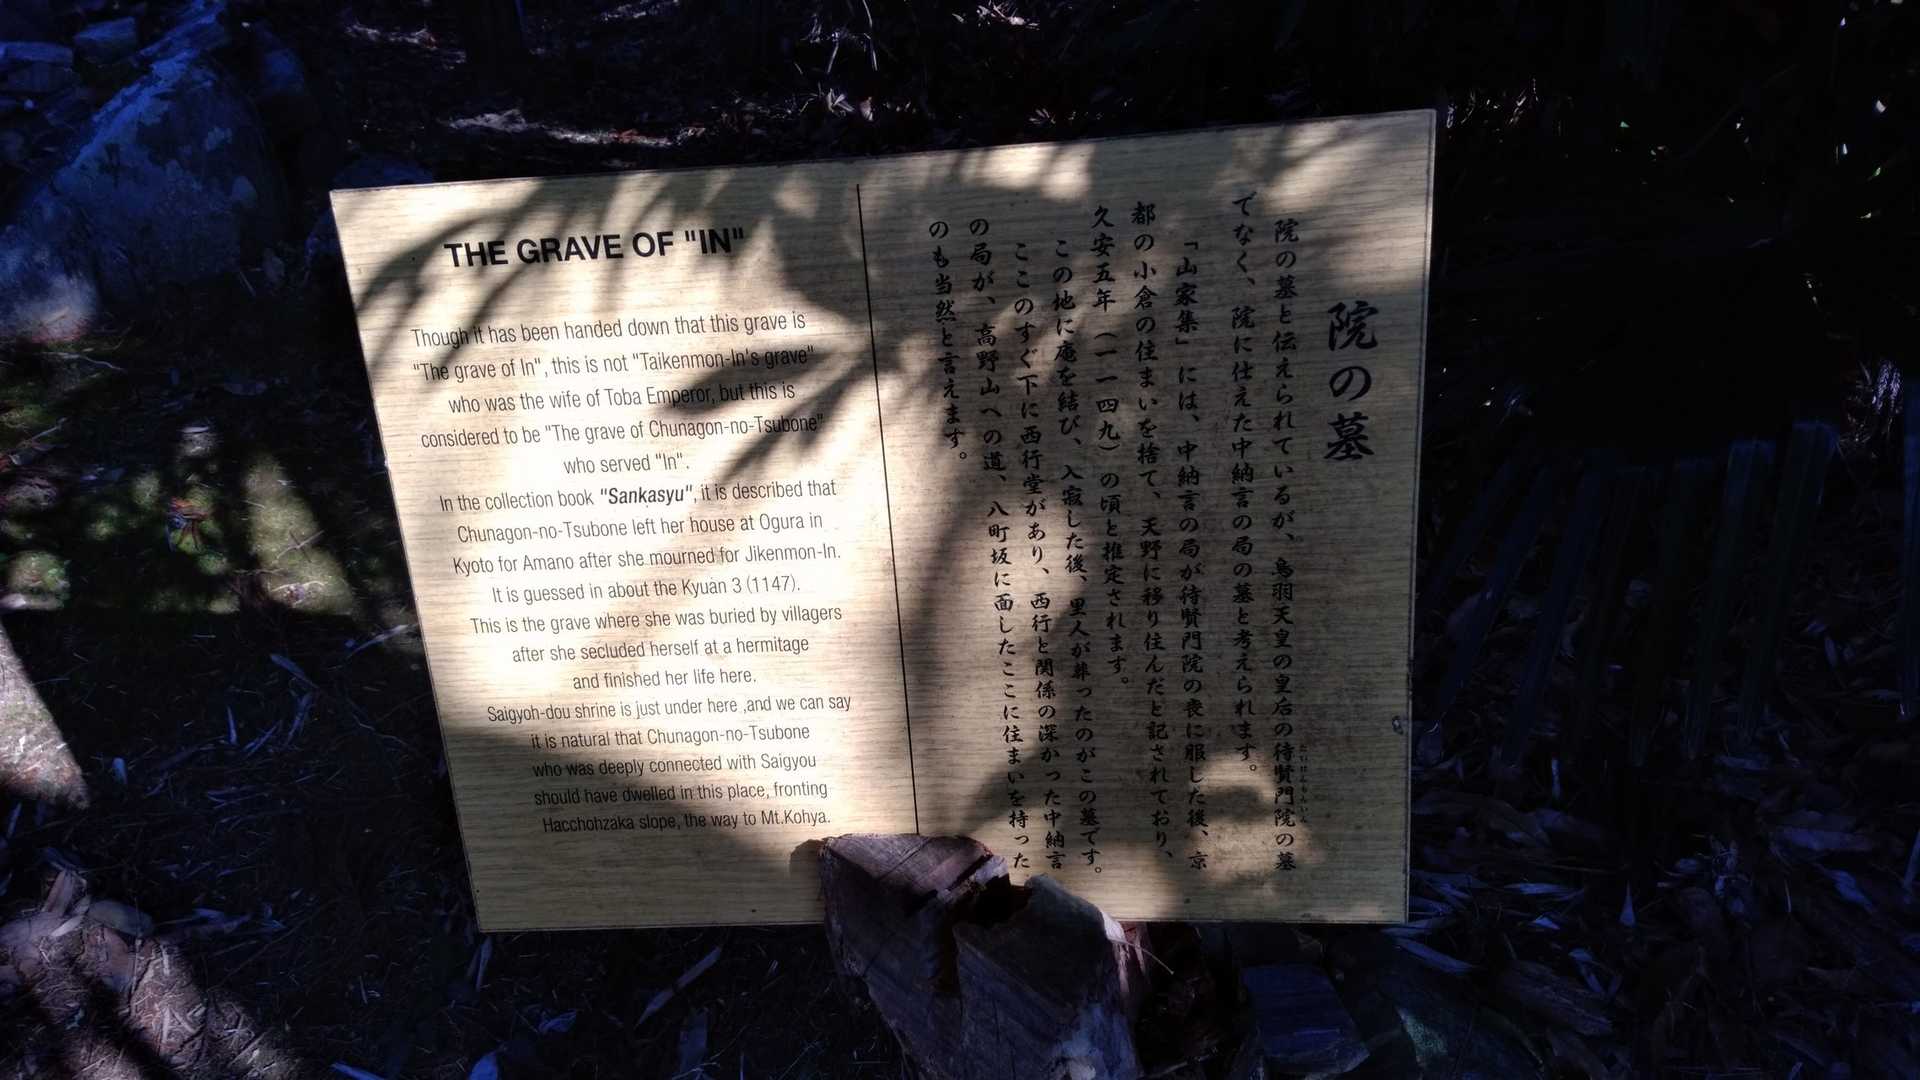 THE GRAVE OF "IN"
Though it has been handed down that this grave is
"The grave of In", this is not "Taikenmon-In's grave"
who was the wife of Toba Emperor, but this is
considered to be "The grave of Chunagon-no-Tsubone"
who served "In".
In the collection book "Sankasyu", it is described that
Chunagon-no-Tsubone left her house at Ogura in
Kyoto for Amano after she mourned for Jikenmon-In.
It is guessed in about the Kyuan 3 (1147).
This is the grave where she was buried by villagers
after she secluded herself at a hermitage
and finished her life here.
Saigyoh-dou shrine is just under here ,and we can say
it is natural that Chunagon-no-Tsubone
who was deeply connected with Saigyou
should have dwelled in this place, fronting
Hacchohzaka slope, the way to Mt.Kohya.
院の墓
院の墓と伝えられているが、鳥羽天皇の皇后の待賢門院の墓
たいけんもんいん
でなく、院に仕えた中納言の局の墓と考えられます。
「山家集」には、中納言の局が待賢門院の喪に服した後、京
都の小倉の住まいを捨て、天野に移り住んだと記されており、
久安五年（一一四九）の頃と推定されます。
この地に庵を結び、入寂した後、里人が葬ったのがこの墓です。
ここのすぐ下に西行堂があり、西行と関係の深かった中納言
の局が、高野山への道、八町坂に面したここに住まいを持った
のも当然と言えます。